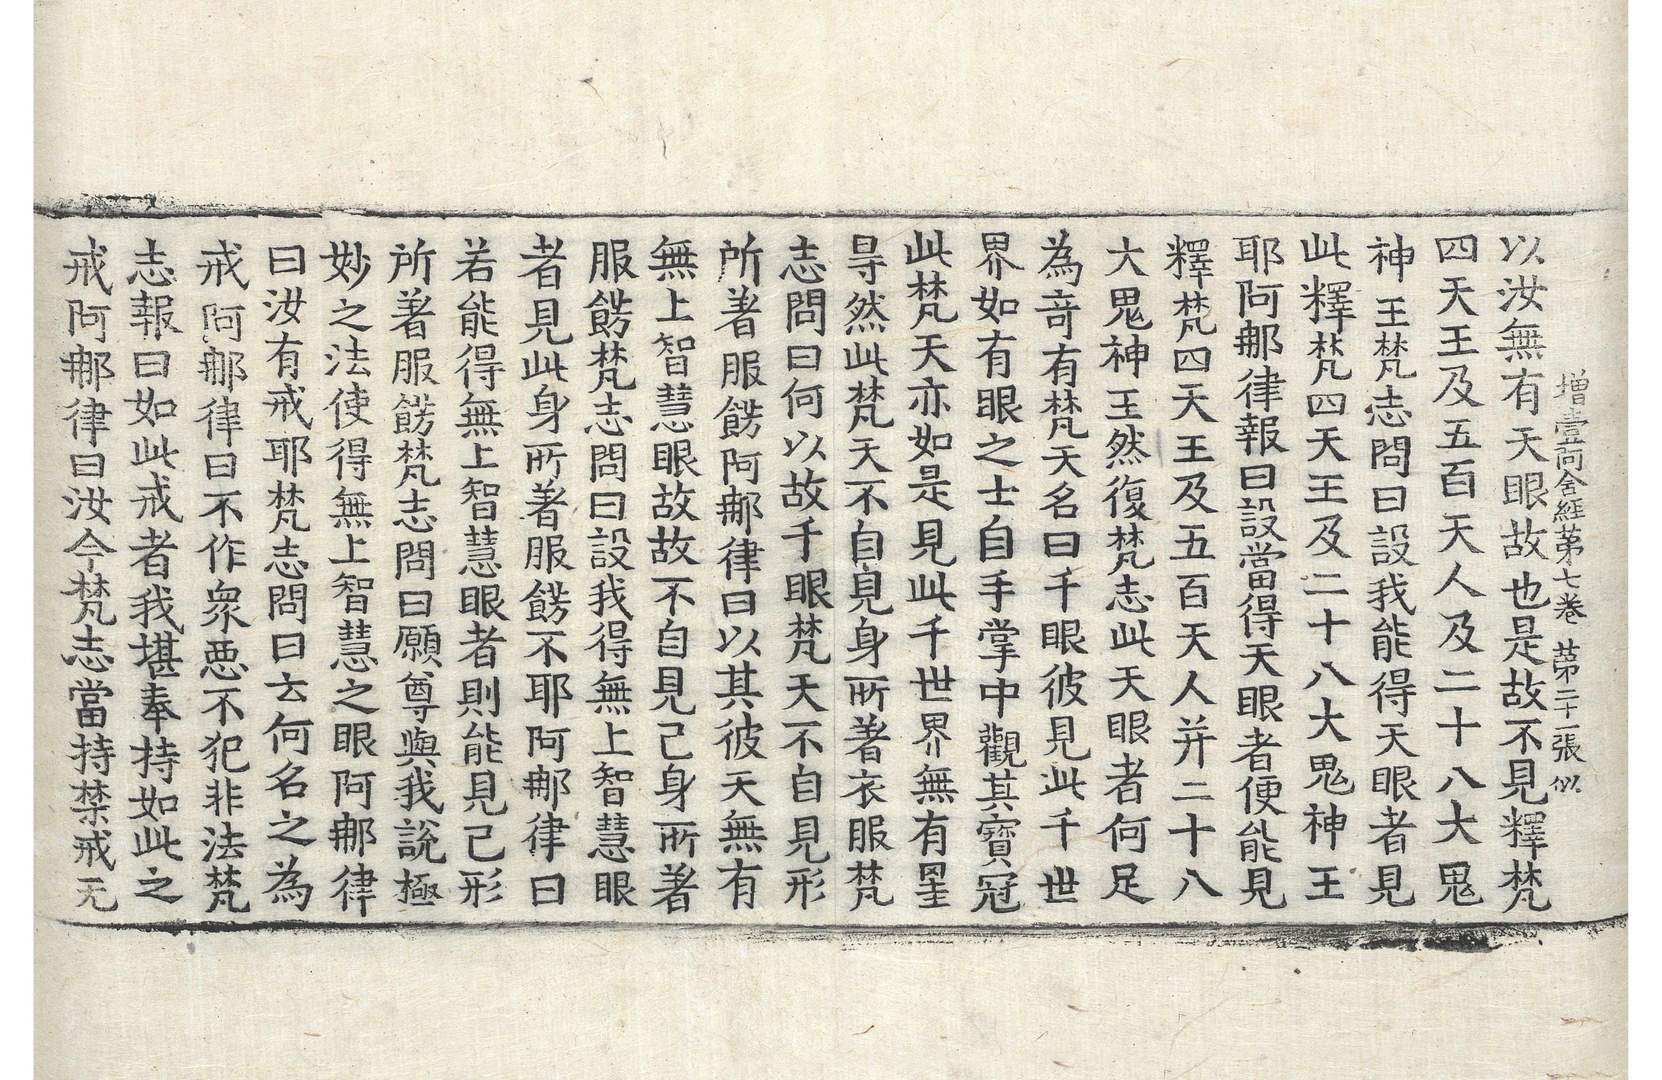 增壹阿含經第七卷　第二十一張　似
以汝無有天眼故也是故不見釋梵
四天王及五百天人及二十八大鬼
神王梵志問曰設我能得天眼者見
此釋梵四天王及二十八大鬼神王
耶阿那律報曰設當得天眼者便能見
釋梵四天王及五百天人并二十八
大鬼神王然復梵志此天眼者何足
為奇有梵天名曰千眼彼見此千世
界如有眼之士自手掌中觀其寶冠
此梵天亦如是見此千世界無有罣
㝵然此梵天不自見身所著衣服梵
志問曰何以故千眼梵天不自見形
所著服餝阿那律曰以其彼天無有
無上智慧眼故故不自見己身所著
服餝梵志問曰設我得無上智慧眼
者見此身所著服餝不耶阿那律曰
若能得無上智慧眼者則能見己形
所著服餝梵志問曰願尊與我說極
妙之法使得無上智慧之眼阿那律
曰汝有戒耶梵志問曰云何名之為
戒阿那律曰不作衆惡不犯非法梵
志報曰如此戒者我堪奉持如此之
戒阿那律曰汝今梵志當持禁戒无